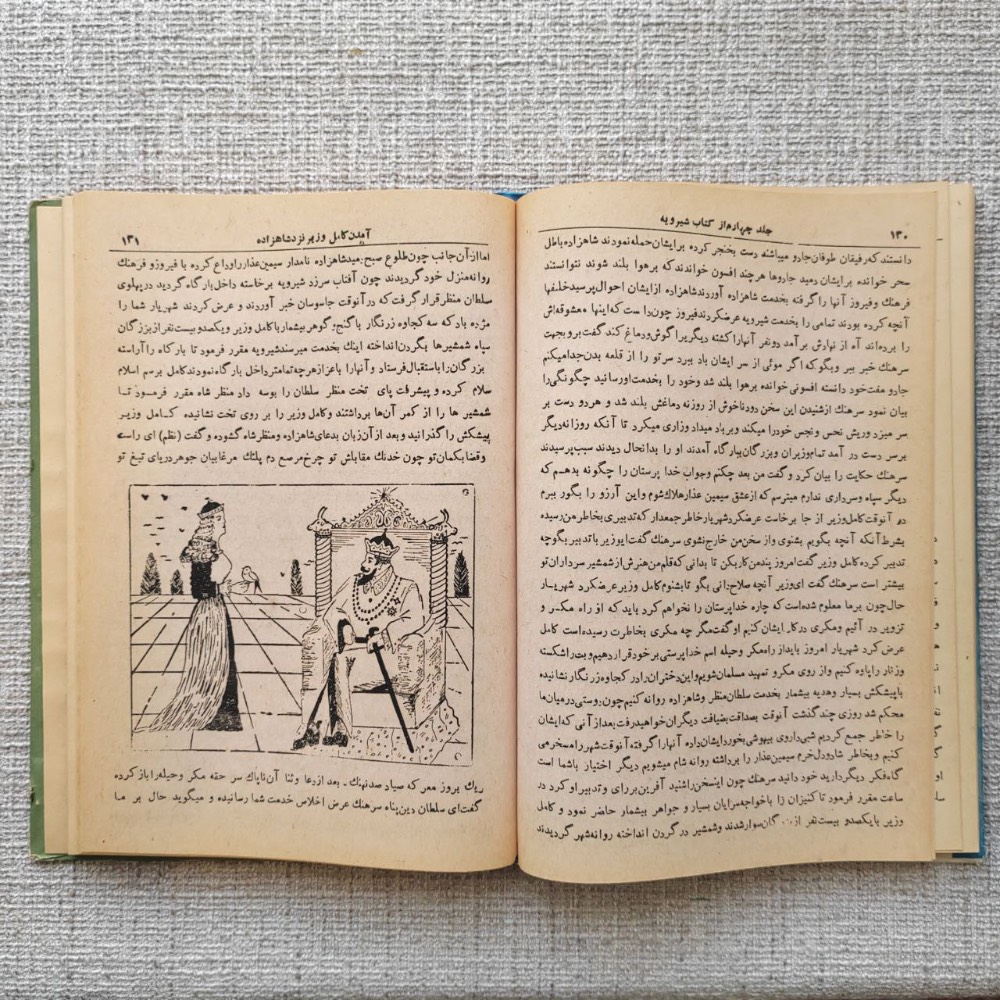 ۱۳۰
جلد چهارم از کتاب شیرویه
دانستند که رفیقان طوفان جارو میباشند دست بخنجر کرده برایشان حمله نمودند شاهزاده باطل
سحر خوانده برایشان دمید جاروها هر چند افسون خواندند که برهوا بلند شوند نتوانستند
فرهنك وفیروز آنها را گرفته بخدمت شاهزاده آوردند شاهزاده از ایشان احوال پرسید خلفها
آنچه کرده بودند تمامی را بخدمت شیرویه عرضکردند فیروز چون دانست که اینها معشوقه اش
را برده اند آه از نهادش برآمد دو نفر آنها را کشته دیگری را گوش و دماغ کند گفت برو بجهت
سرهنك خبر ببر و بگو که اگر موئی از سر ایشان باد ببرد سر تو را از قلعه بدن جدا میکنم
جارو مفت خود دانسته افسونی خوانده برهوا بلند شد و خود را بخدمت اورسانید چگونگی را
بیان نمود سرهنك از شنیدن این سخن دود ناخوش از روزنه دماغش بلند شد و هر دو دست بر
سر میزد و ریش نحس و نجس خود را میکند و بر باد میداد وزاری میکرد تا آنکه روزانه دیگر
برسر دست در آمد تمام وزیران و بزرگان ببارگاه آمدند او را بدانحال دیدند سبب پرسیدند
سرهنك حکایت را بیان کرد و گفت من بعد چکنم وجواب خدا پرستان را چگونه بدهم که
دیگر سپاه وسرداری ندارم میترسم که از عشق سیمین عذار هلاك شوم و این آرزو را بگور ببرم
در آنوقت کامل وزیر از جا برخاست عرضکرد شهریار خاطر جمعدار که تدبیری بخاطر من رسیده
بشرط آنکه آنچه بگویم بشنوی و از سخن من خارج نشوی سرهنك گفت ایوزیر با تدبیر بگو چه
تدبیر کرده کامل وزیر گفت امروز پند من کار بکن تا بدانی که قلم من هنرش از شمشیر سرداران تو
بیشتر است سرهنك گفت ای وزیر آنچه صلاح دانی بگو تا بشنوم کامل وزیر عرضکرد شهریار
حال چون برما معلوم شده است که چاره خدا پرستان را نخواهم کرد باید که از راه مکر و
تزویر در آئیم ومکری در کار ایشان کنیم او گفت مگر چه مکری بخاطرت رسیده است کامل
عرض کرد شهریار امروز باید از راه مکر وحیله اسم خدا پرستی بر خود قرار دهیم وبت را شکسته
وزنار را پاوه کنیم و از روی مکرو تمهید مسلمان شویم و این دختران را در کجاوه زرنگار نشانیده
با پیشکش بسیار وهدیه بیشمار بخدمت سلطان منظر وشاهزاده روانه کنیم چون دوستی در میان ما
محکم شد روزی چند گذشت آنوقت بصداقت بضیافت دیگران خواهید رفت بعد از آنی که ایشان
را خاطر جمع کردیم شبی داروی بیهوشی بخورد ایشان داده آنها را گرفته آنوقت شهر را مسخر می
کنیم وبخاطر شاد و دل خرم سیمین عذار را برداشته روانه شام میشویم دیگر اختیار باشما است
گاه فکر دیگر دارید خود دانید سرهنك چون این سخن را شنید آفرین بر رای و تدبیر او کرد در
ساعت مقرر فرمود تا کنیزان را با خواجه سرایان بسیار و جواهر بیشمار حاضر نمود و کامل
وزیر با یکصدو بیست نفر از بزرگان سوار شدند و شمشیر در گردن انداخته روانه شهر گردیدند
آمدن کامل وزیر نزد شاهزاده
۱۳۱
اما از آن جانب چون طلوع صبح دمید شاهزاده نامدار سیمین عذار را وداع کرده با فیروز و فرهنك
روانه منزل خود گردیدند چون آفتاب سرزد شیرویه برخاسته داخل بارگاه گردید در پهلوی
سلطان منظر قرار گرفت که در آنوقت جاسوسان خبر آوردند و عرض کردند شهریار شما را
مژده باد که سه کجاوه زرنگار با گنج و گوهر بیشمار با کامل وزیر ویکصدو بیست نفر از بزرگان
سپاه شمشیرها بگردن انداخته اینك بخدمت میرسند شیرویه مقرر فرمود تا بارگاه را آراسته
بزرگان را باستقبال فرستاد و آنها را باعزاز هر چه تمامتر داخل بارگاه نمودند کامل برسم اسلام
سلام کرده و پیش رفت پای تخت منظر سلطان را بوسه داد منظر شاه مقرر فرمود تا
شمشیر ها را از کمر آن ها برداشتند وکامل وزیر را بر روی تخت نشانیده کامل وزیر
پیشکش را گذرانید و بعد از آن زبان بدعای شاهزاده ومنظر شاه گشوده و گفت (نظم) ای راست
وقضا بکمان تو چون خدنك مقابلش تو چرخ مرصع دم پلنك مرغابیان جوهر دریای تیغ تو
ریك بروز معر که صیاد صد نهنك - بعد از دعا وثنا آن ناپاك سر حقه مکر وحیله را باز کرده
گفت ای سلطان دین پناه سرهنك عرض اخلاص خدمت شما رسانیده و میگوید حال بر ما